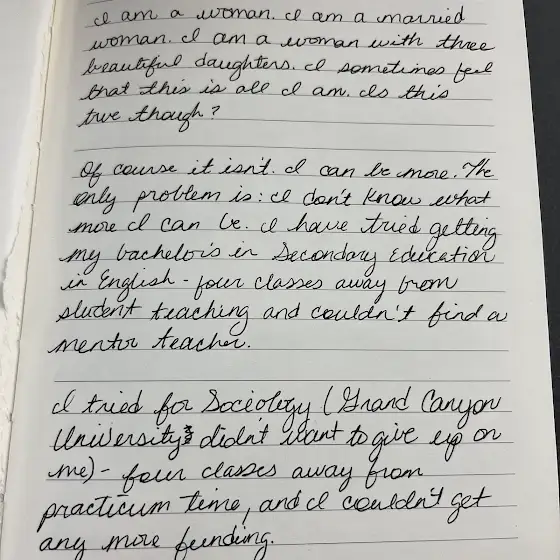 I am a woman. I am a married
woman. I am a woman with three
beautiful daughters. I sometimes feel
that this is all I am. Is this
true though?
Of course it isn't. I can be more. The
only problem is: I don't know what
more I can be. I have tried getting
my bachelor's in Secondary Education
in English - four classes away from
student teaching and couldn't find a
mentor teacher.
I tried for Sociology (Grand Canyon
University didn't want to give up on
me) - four classes away from
practicum time, and I couldn't get
any more funding.